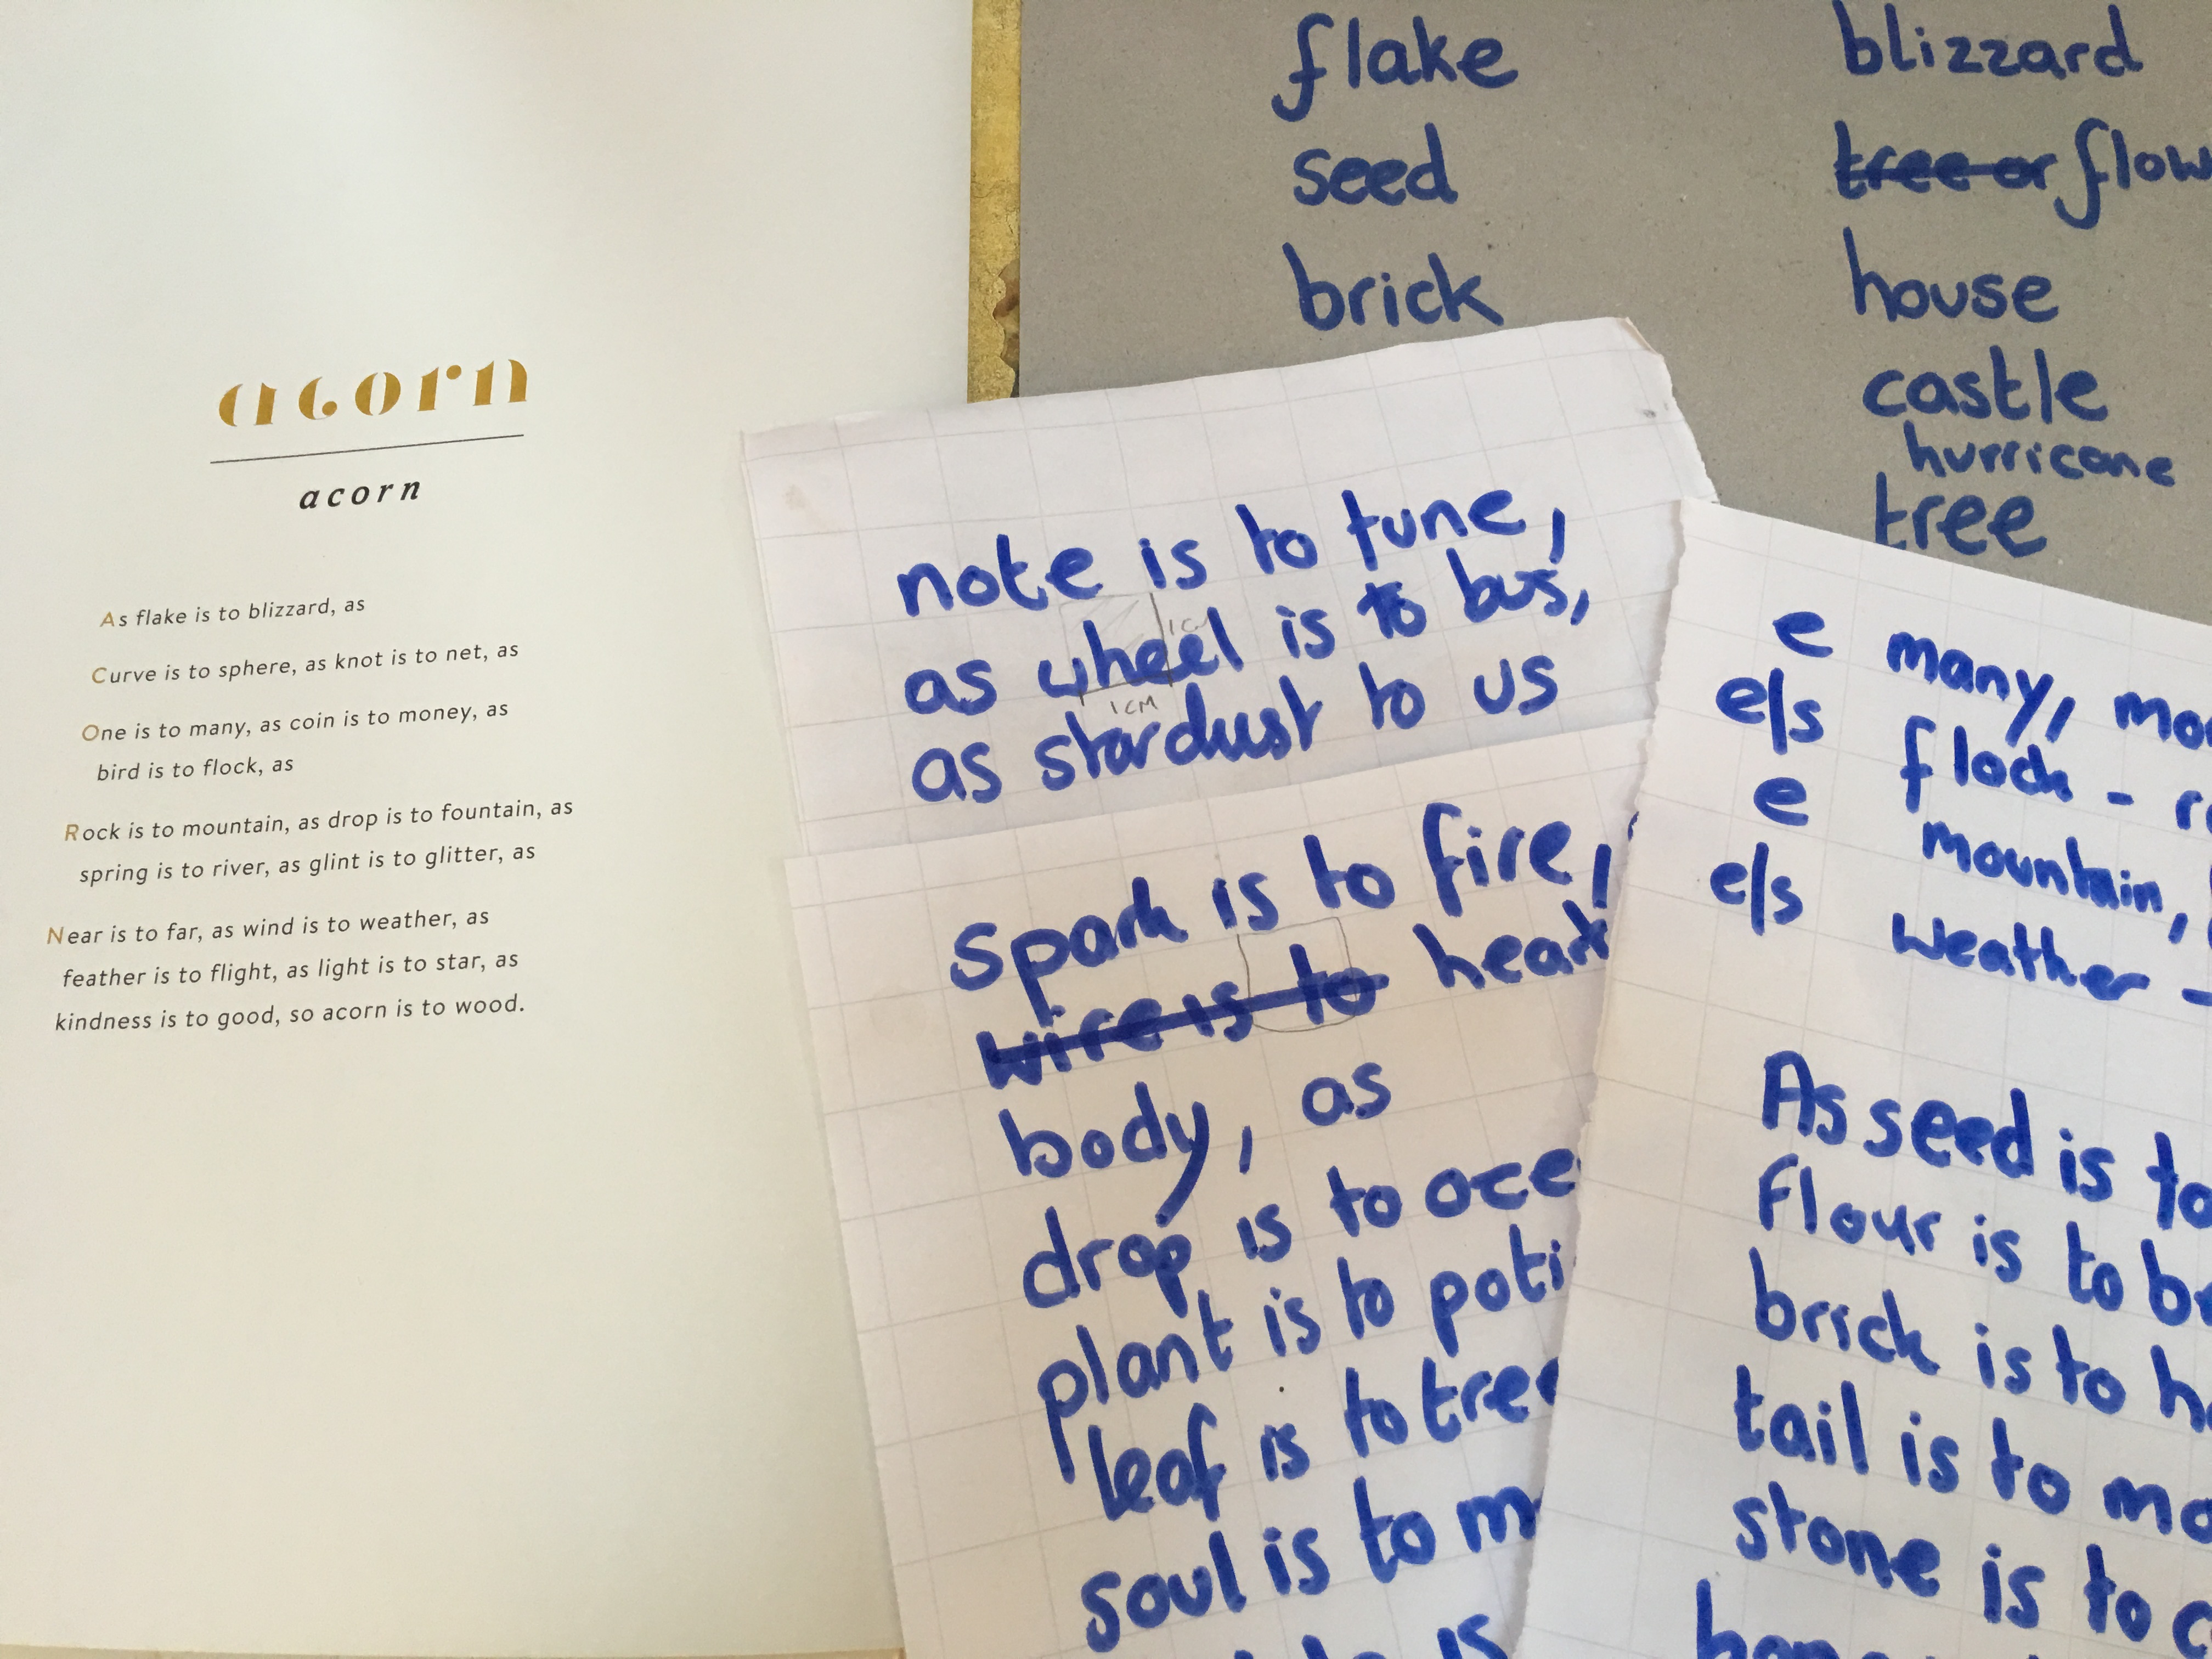 acorn
acorn
As flake is to blizzard, as
Curve is to sphere, as knot is to net, as
One is to many, as coin is to money, as
bird is to flock, as
Rock is to mountain, as drop is to fountain, as
spring is to river, as glint is to glitter, as
Near is to far, as wind is to weather, as
feather is to flight, as light is to star, as
kindness is to good, so acorn is to wood.
flake blizzard
seed tree or flow
brick house
castle
hurricane
tree
note is to tune,
as wheel is to bus,
as stardust to us
1cm
spark is to fire,
wire is to heart
body, as
drop is to oce
plant is to poti
leaf is to tree
soul is to m
e many, mo
e/s flock -
e mountain,
e/s weather -
As seed is to
flour is to b
brick is to h
tail is to mo
stone is to c